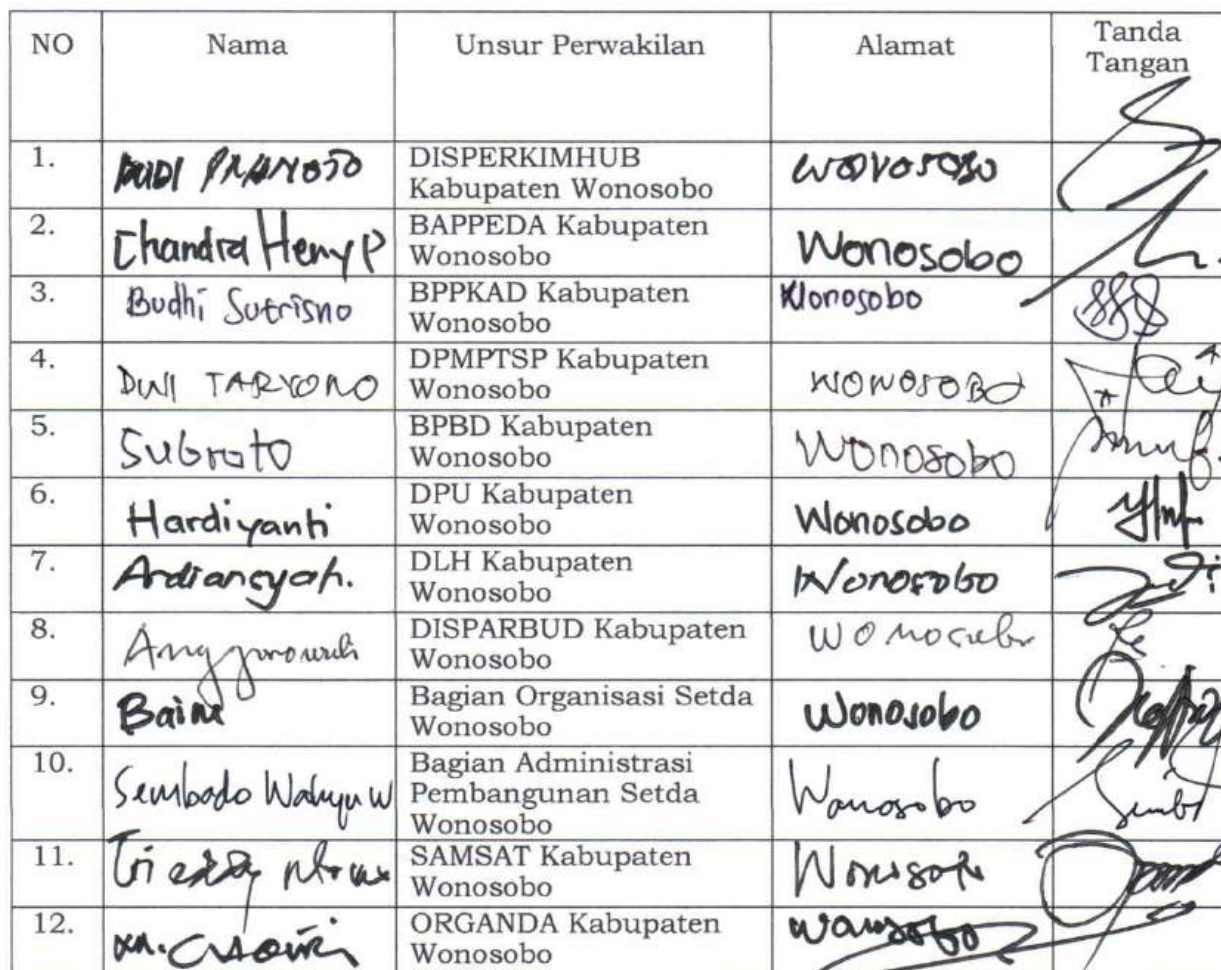 NO Nama Unsur Perwakilan Alamat Tanda
Tangan
1. BUDI PRANOTO DISPERKIMHUB WONOSOBO
Kabupaten Wonosobo
2. Chandra Heny P BAPPEDA Kabupaten Wonosobo
Wonosobo
3. Budhi Sutrisno BPPKAD Kabupaten Wonosobo
Wonosobo
4. DWI TARYONO DPMPTSP Kabupaten WONOSOBO
Wonosobo
5. Subroto BPBD Kabupaten Wonosobo
Wonosobo
6. Hardiyanti DPU Kabupaten Wonosobo
Wonosobo
7. Ardiansyah. DLH Kabupaten Wonosobo
Wonosobo
8. DISPARBUD Kabupaten Wonosobo
Wonosobo
9. Bagian Organisasi Setda Wonosobo
Wonosobo
10. Sembodo Wahyu W Bagian Administrasi Wonosobo
Pembangunan Setda
Wonosobo
11. Tri SAMSAT Kabupaten Wonosobo
Wonosobo
12. ORGANDA Kabupaten Wonosobo
Wonosobo